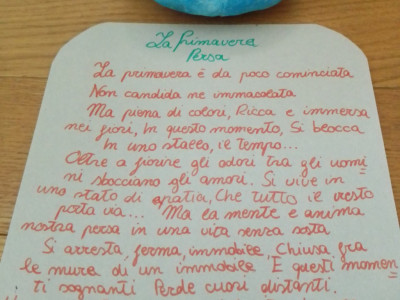 La Primavera
Persa
La primavera è da poco cominciata
Non candida ne immacolata
Ma piena di colori, Ricca e immersa
nei fiori, In questo momento, Si blocca
In uno stallo, il tempo...
Oltre a fiorire gli odori tra gli uomi=
ni sbocciano gli amori. Si vive in
uno stato di apatia, Che tutto il resto
porta via... Ma la mente e anima
nostra persa in una vita senza sosta
Si arresta, ferma, immobile. Chiusa fra
le mura di un immobile E questi momen=
ti sognanti Perde cuori distanti.